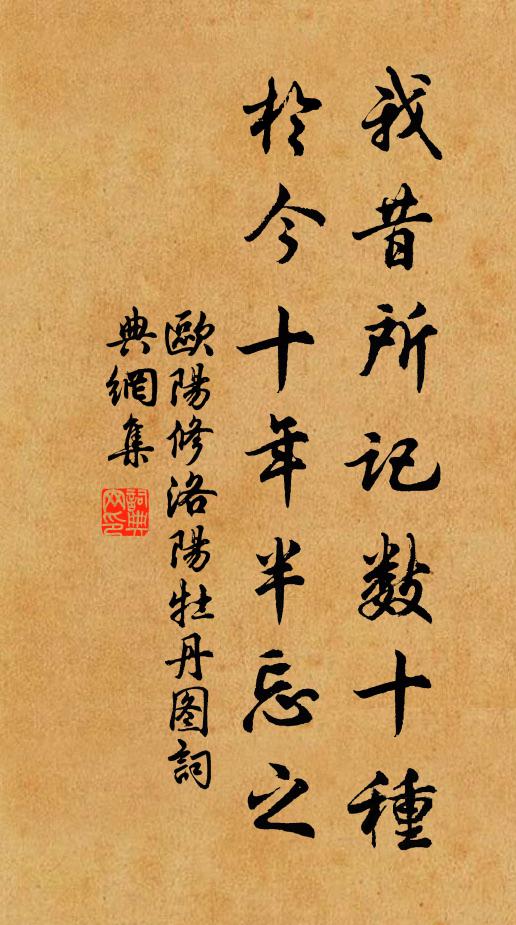 我昔所记数十種
於今十年半忘之
歐陽修洛陽牡丹图詞
典網集
詞典
网印